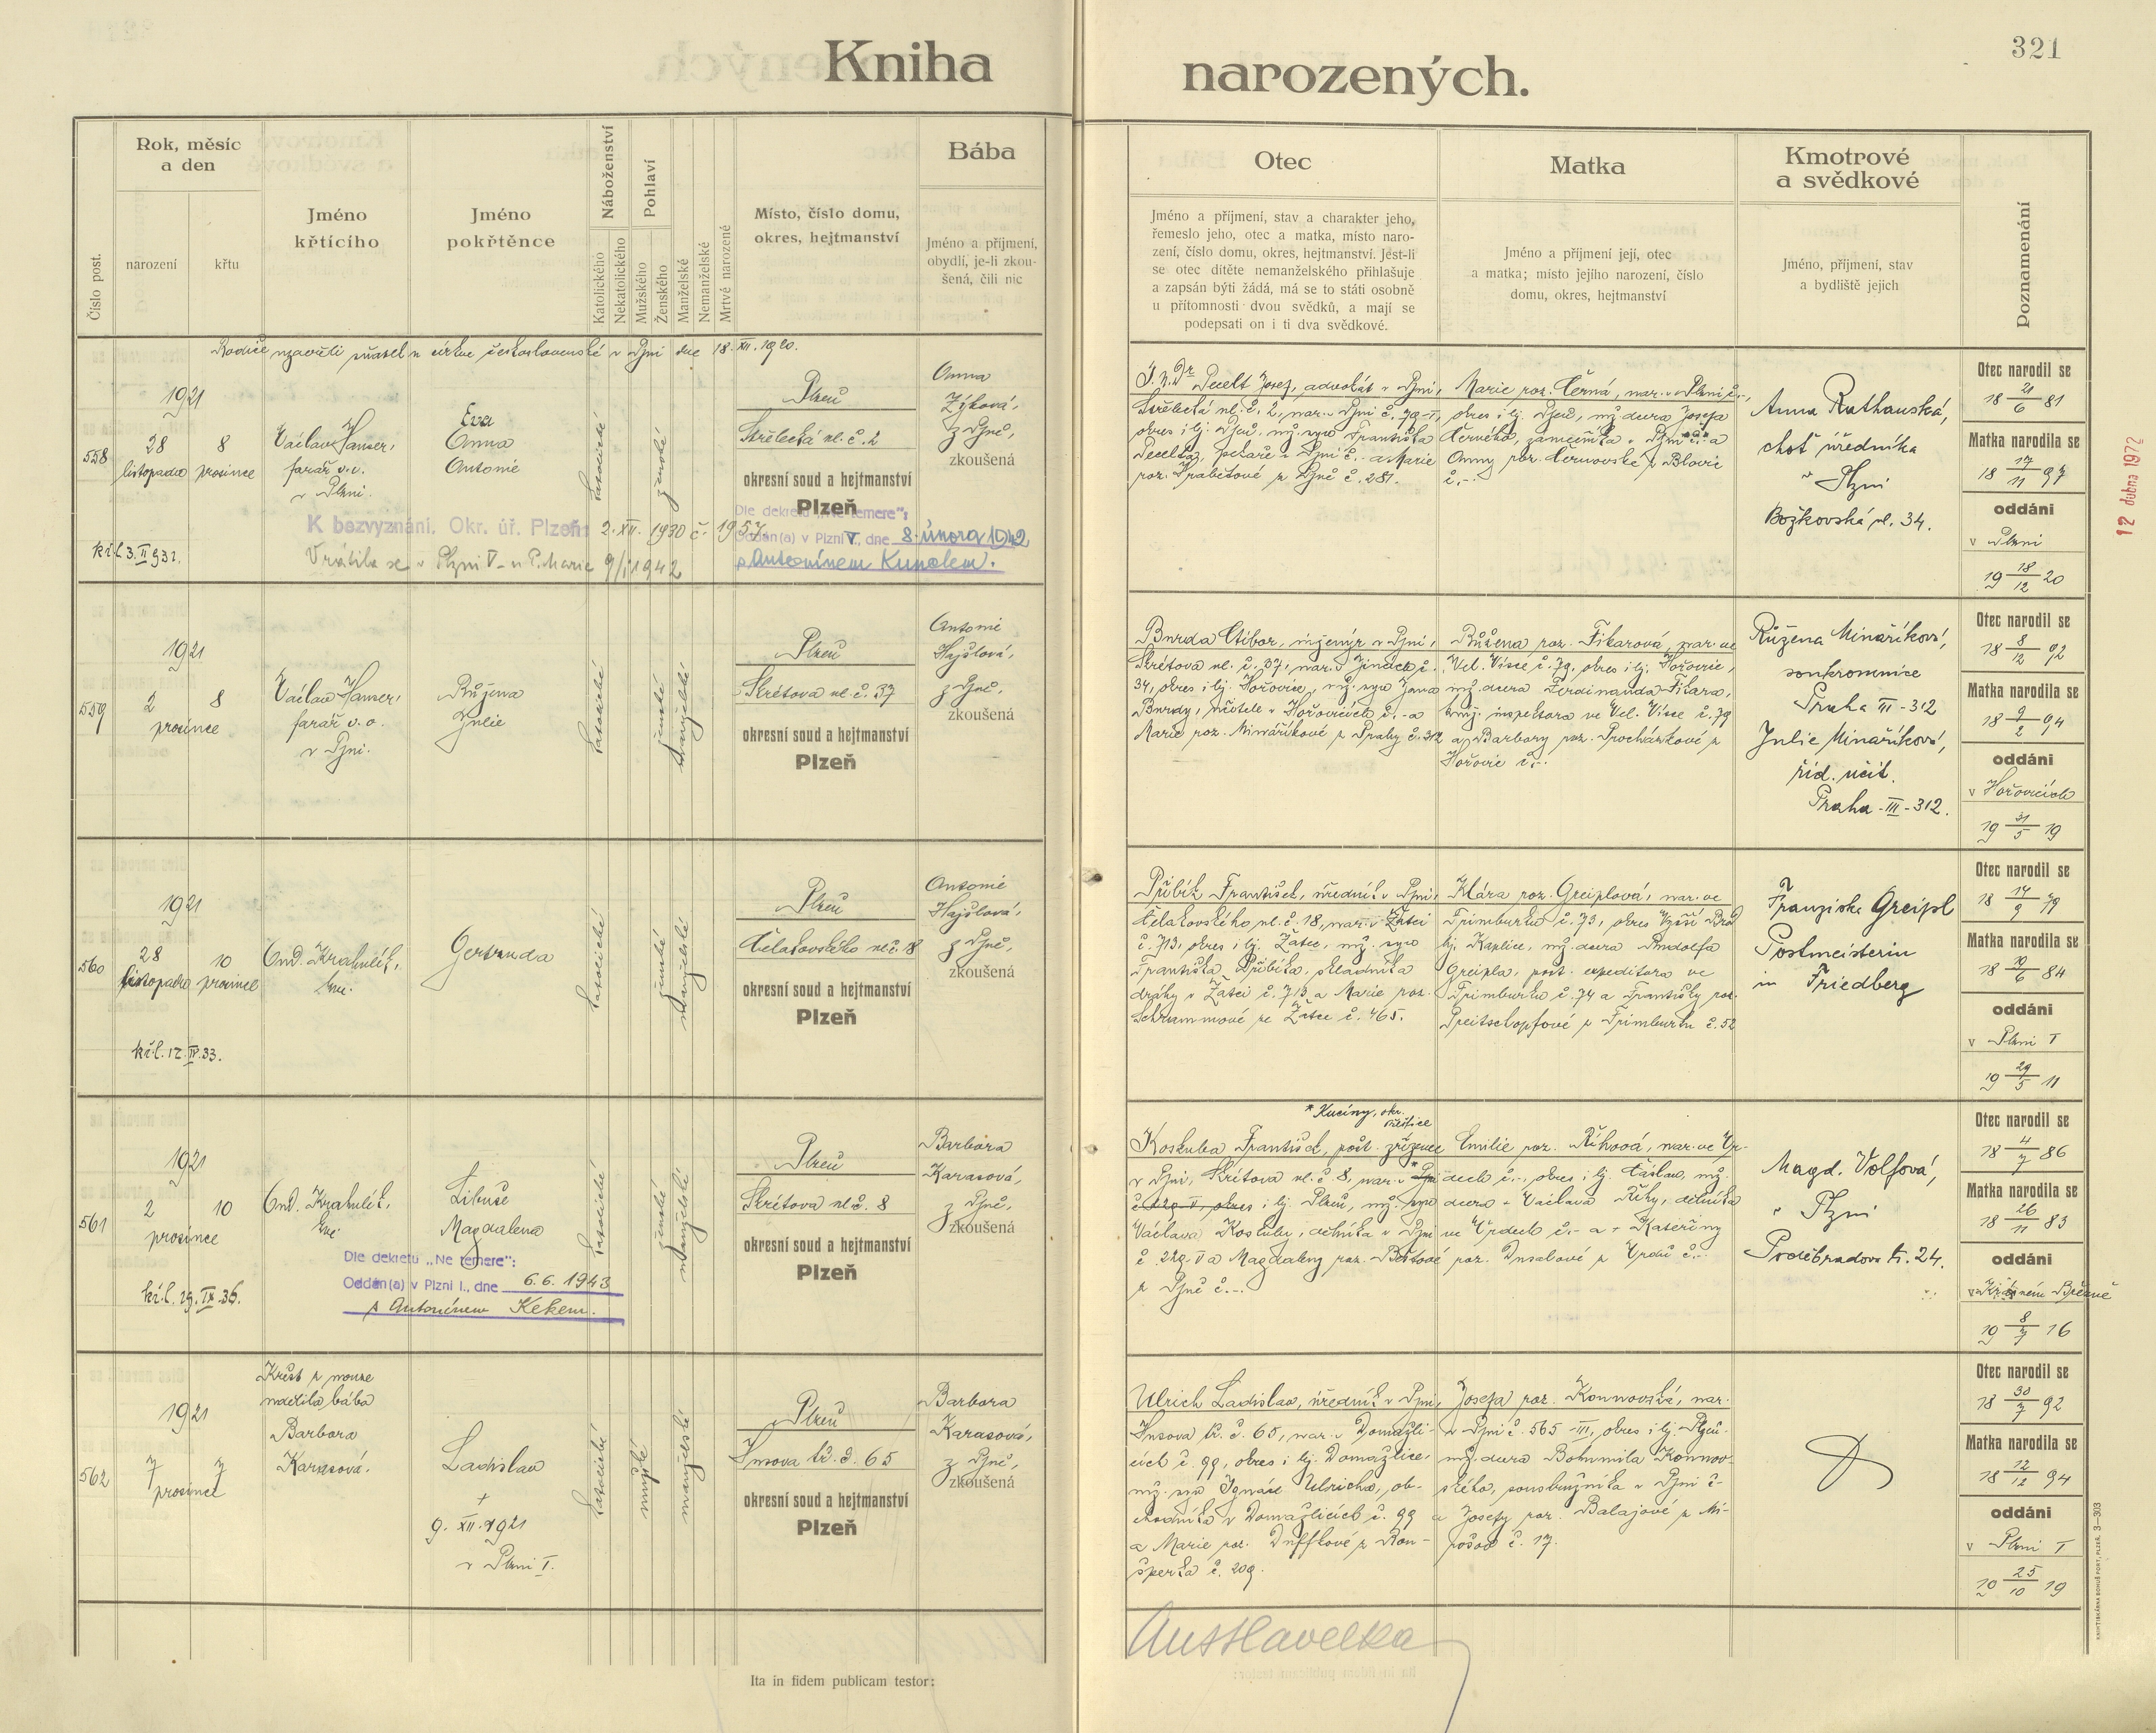 Kniha
narozených.
321
Číslo post.
Rok, měsíc
a den
narození
křtu
Jméno
křtícího
Jméno
pokřtěnce
Náboženství
Katolického
Nekatolického
Pohlaví
Mužského
Ženského
Manželské
Nemanželské
Mrtvě narozené
Místo, číslo domu,
okres, hejtmanství
Bába
Jméno a příjmení,
obydlí, je-li zkou-
šená, čili nic
Otec
Jméno a příjmení, stav a charakter jeho,
řemeslo jeho, otec a matka, místo naro-
zení, číslo domu, okres, hejtmanství. Jest-li
se otec dítěte nemanželského přihlašuje
a zapsán býti žádá, má se to státi osobně
u přítomnosti dvou svědků, a mají se
podepsati on i ti dva svědkové.
Matka
Jméno a příjmení její, otec
a matka; místo jejího narození, číslo
domu, okres, hejtmanství
Kmotrové
a svědkové
Jméno, příjmení, stav
a bydliště jejich
Poznamenání
Rodiče uzavřeli sňatek v církvi československé v Plzni dne 18. XII. 1920.
558
1921
28 8
listopadu prosince
Václav Hanser,
farář v.v.
v Plzni.
Eva
Anna
Antonie
katolické
ženské
Plzeň
Střelecká ul. č. 2
okresní soud a hejtmanství
Plzeň
Anna
Zíková,
z Plzně,
zkoušená
K bezvyznání. Okr. úř. Plzeň: 2. XII. 1930 č. 1957.
kř.l. 3. II 932.
Vrátila se v Plzni V - u P. Marie 9/I 1942
Dle dekretu „Ne temere":
Oddán(a) v Plzni V, dne 8. února 1942
s Antonínem Kunolem.
J. u. Dr. Pecelt Josef, advokát v Plzni,
Střelecká ul. č. 2, nar. v Plzni č. 79-I,
okres i hj. Plzeň, mž. syn Františka
Pecelta, pekaře v Plzni č. - a Marie
roz. Hrabětové z Plzně č. 281.
Marie roz. Černá, nar. v Plzni č. -,
okres i hj. Plzeň, mž. dcera Josefa
Černého, zámečníka v Plzni č. - a
Anny roz. Černovské z Blovic
č. -.
Anna Rathauská,
choť úředníka
v Plzni
Božkovská ul. 34.
Otec narodil se
18 21/6 81
Matka narodila se
18 17/11 97
oddáni
v Plzni
19 18/12 20
12 dubna 1972
559
1921
2 8
prosince
Václav Hanser,
farář v.v.
v Plzni.
Růžena
Julie
katolické
ženské
manželské
Plzeň
Škrétova ul. č. 37
okresní soud a hejtmanství
Plzeň
Antonie
Hajšlová,
z Plzně,
zkoušená
Burda Ctibor, inženýr v Plzni,
Škrétova ul. č. 37, nar. v Jincích č.
34, okres i hj. Hořovice, mž. syn Jana
Burdy, učitele v Hořovicích č. - a
Marie roz. Minaříkové z Prahy č. 312
Růžena roz. Fikarová, nar. ve
Vel. Vísce č. 79, okres i hj. Hořovice,
mž. dcera Ferdinanda Fikara,
inspektora ve Vel. Vísce č. 79
a Barbory roz. Procházkové z
Hořovic č. -.
Růžena Minaříková,
soukromnice
Praha III - 312
Julie Minaříková,
říd. učit.
Praha - III - 312.
Otec narodil se
18 8/12 92
Matka narodila se
18 9/2 94
oddáni
v Hořovicích
19 31/5 19
560
1921
28 10
listopadu prosince
Ond. Krahulík,
Gertruda
katolické
ženské
manželské
Plzeň
Čelakovského ul. č. 18
okresní soud a hejtmanství
Plzeň
Antonie
Hajšlová,
z Plzně,
zkoušená
kř.l. 12. IV. 33.
Přibík František, úředník v Plzni,
Čelakovského ul. č. 18, nar. v Žatci
č. 713, okres i hj. Žatec, mž. syn
Františka Přibíka, skladníka
dráhy v Žatci č. 713 a Marie roz.
Schrammové ze Žatce č. 465.
Klára roz. Greiplová, nar. ve
Frimburku č. 73, okres Vyšší Brod
hj. Kaplice, mž. dcera Rudolfa
Greipla, pošt. expeditora ve
Frimburku č. 74 a Františky roz.
Preitschopfové z Frimburku č. 52
Franziska Greipl
Postmeisterin
in Friedberg
Otec narodil se
18 14/9 79
Matka narodila se
18 10/6 84
oddáni
v Plzni I
19 29/5 11
561
1921
2 10
prosince
Ond. Krahulík,
Libuše
Magdalena
katolické
ženské
manželské
Plzeň
Škrétova ul. č. 8
okresní soud a hejtmanství
Plzeň
Barbora
Karasová,
z Plzně,
zkoušená
kř.l. 29. IX. 36.
Dle dekretu „Ne temere":
Oddán(a) v Plzni I., dne 6. 6. 1943
s Antonínem Kekem.
* Kucíny, okr.
Přeštice
Koskuba František, pošt. zřízenec
v Plzni, Škrétova ul. č. 8, nar. v * Plzni
č. 229-V, okres i hj. Plzeň, mž. syn
Václava Koskuby, dělníka v Plzni
č. 229-V a Magdaleny roz. Beštové
z Plzně č. -.
Emilie roz. Říhová, nar. ve Vr-
dech č. -, okres i hj. Čáslav, mž.
dcera + Václava Říhy, dělníka
ve Vrdech č. - a + Kateřiny
roz. Dusalové z Vrdů č. -.
Magd. Volfová,
v Plzni
Poděbradova tř. 24.
Otec narodil se
18 4/7 86
Matka narodila se
18 26/11 83
oddáni
v Krásném Březně
19 8/7 16
562
1921
7 7
prosince
Křest z nouze
udělila bába
Barbora
Karasová.
Ladislav
+
9. XII. 1921
v Plzni I.
katolické
mužské
manželské
Plzeň
Husova tř. č. 65
okresní soud a hejtmanství
Plzeň
Barbora
Karasová,
z Plzně,
zkoušená
Ulrich Ladislav, úředník v Plzni,
Husova tř. č. 65, nar. v Domažli-
cích č. 99, okres i hj. Domažlice,
mž. syn Ignáce Ulricha, ob-
chodníka v Domažlicích č. 99
a Marie roz. Duffkové z Ron-
šperka č. 209.
Josefa roz. Konnovská, nar.
v Plzni č. 565-III, okres i hj. Plzeň.
mž. dcera Bohumila Konnov-
ského, soustružníka v Plzni č. -
a Josefy roz. Balajové z Mi-
č. 17.
Otec narodil se
18 30/7 92
Matka narodila se
18 12/12 94
oddáni
v Plzni I
19 25/10 19
Ita in fidem publicam testor:
KNIHTISKÁRNA BOHUŠ PORT, PLZEŇ. 3—303